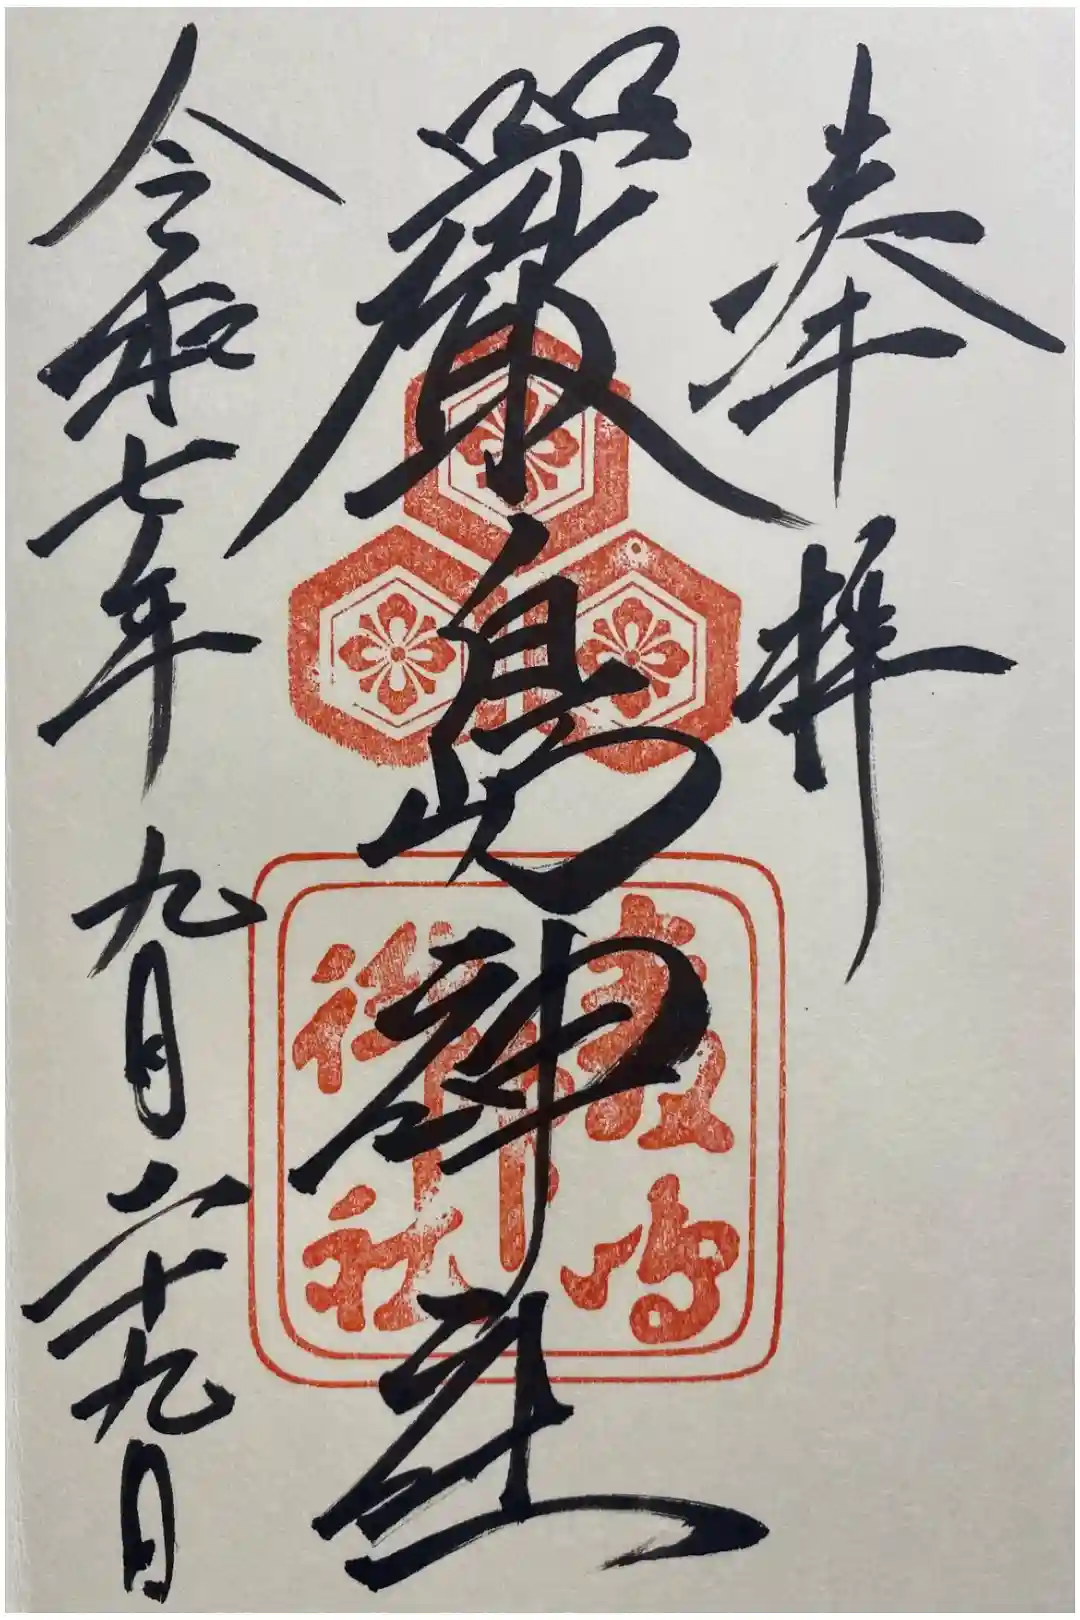 奉拝
嚴島神社
令和七年九月二十九日
嚴島
神社